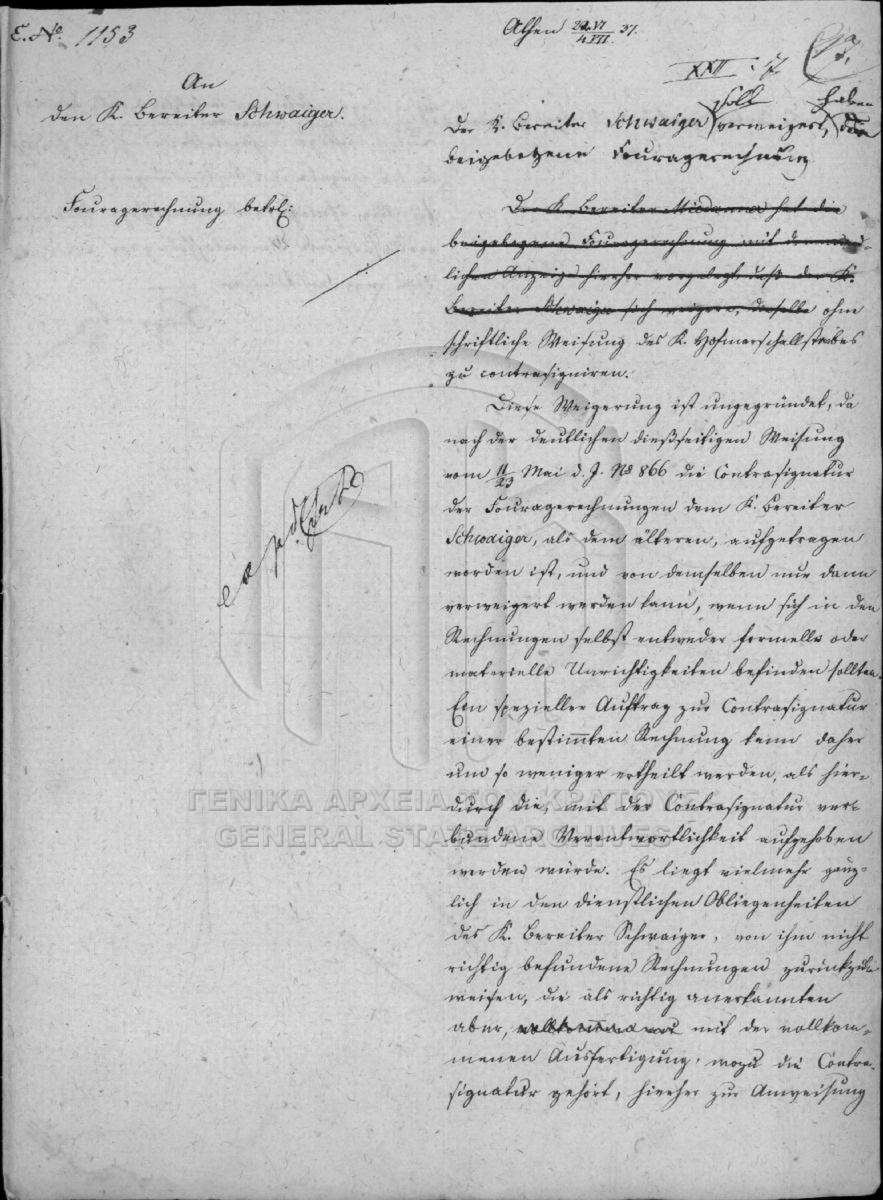 E. No. 1153
Athen 22.VI/4.VII. 37.
XXII : 7.
An
den K. Bereiter Schwaiger.
Fouragerechnung betrf:
soll haben
Der K. Bereiter Schwaiger verweigert, die
beigebogene Fouragerechnung
Der K. Bereiter Miedanner hat die
beigebogene Fouragerechnung mit der münd-
lichen Anzeige hierher vorgelegt, daß der K.
Bereiter Schwaiger sich weigere, dieselbe ohne
schriftliche Weisung des K. Hofmarschallstabes
zu contrasigniren.
Diese Weigerung ist ungegründet, da
nach der deutlichen dießseitigen Weisung
vom 11/23 Mai d. J. No 866 die Contrasignatur
der Fouragerechnungen dem K. Bereiter
Schwaiger, als dem älteren, aufgetragen
worden ist, und von demselben nur dann
verweigert werden kann, wenn sich in den
Rechnungen selbst entweder formelle oder
materielle Unrichtigkeiten befinden sollten.
Ein spezieller Auftrag zur Contrasignatur
einer bestimmten Rechnung kann daher
um so weniger ertheilt werden, als hier-
durch die, mit der Contrasignatur ver-
bundene Verantwortlichkeit aufgehoben
werden würde. Es liegt vielmehr gänz-
lich in den dienstlichen Obliegenheiten
des K. Bereiter Schwaiger, von ihm nicht
richtig befundene Rechnungen zurückzu-
weisen, die als richtig anerkannten
aber, mit der vollkom-
menen Ausfertigung, wozu die Contra-
signatur gehört, hierher zur Anweisung
ΓΕΝΙΚΑ ΑΡΧΕΙΑ ΤΟΥ ΚΡΑΤΟΥΣ
GENERAL STATE ARCHIVES